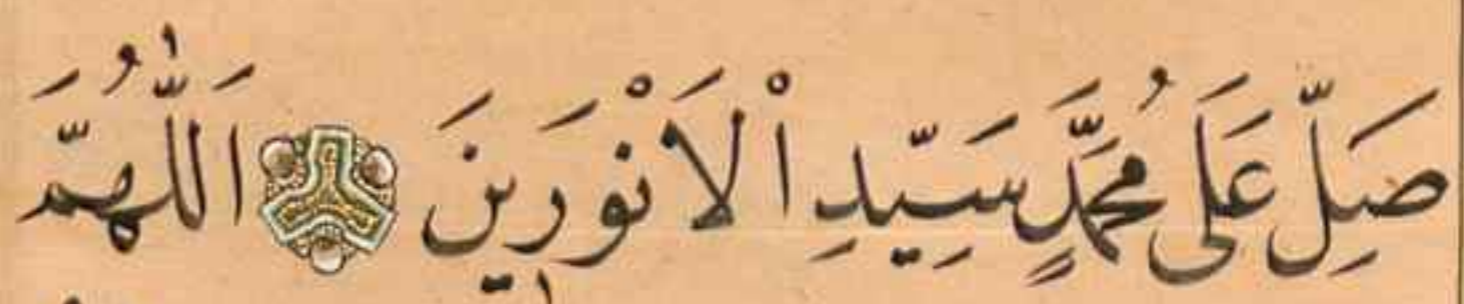 صَلِّ عَلَى مُحَمَّدٍ سَيِّدِ اْلاَنْوَرِينَ اَللّٰهُمَّ